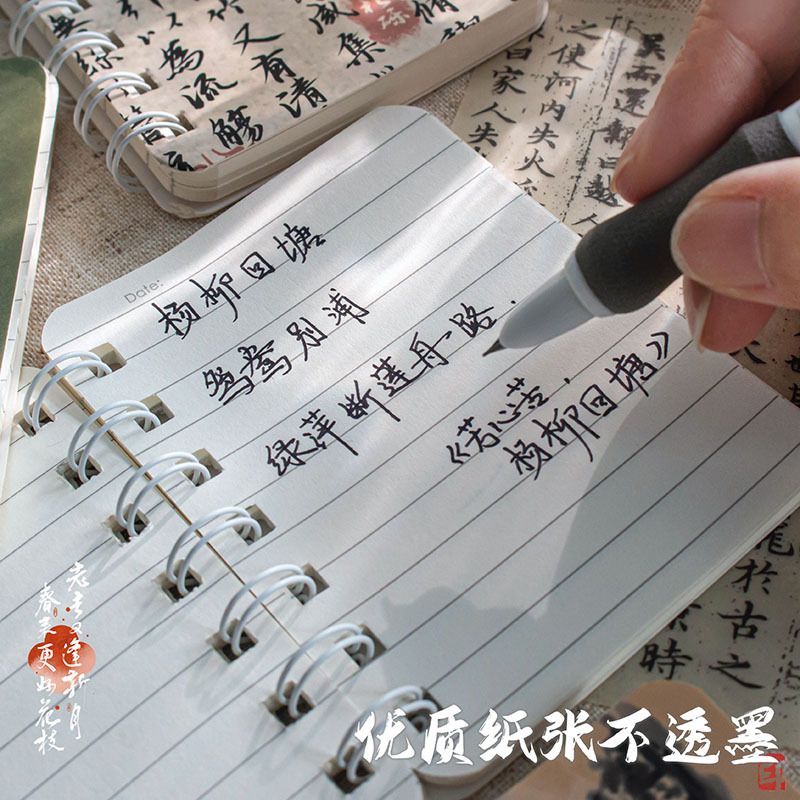 脩
咸集
又有清
為流觴
無絲
之使河内失火
家人失
於古之
時
Date:
杨柳回塘
鸳鸯别浦
绿萍断莲舟路.
《芳心苦.
杨柳回塘》
老去又逢新月
春来更好花枝
优质纸张不透墨